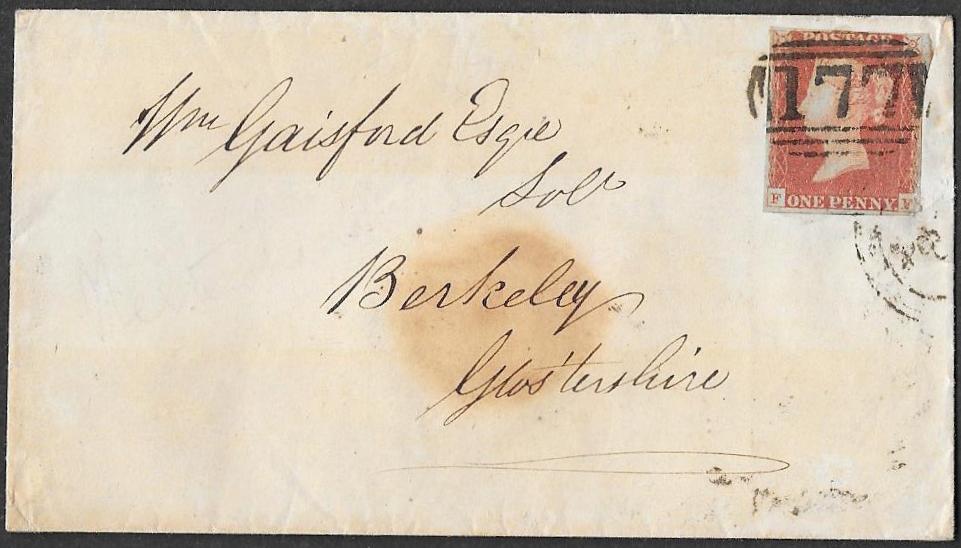 POSTAGE
177
ONE PENNY
F F
Wm Gaisford Esqre
Solr
Berkeley
Glos'tershire